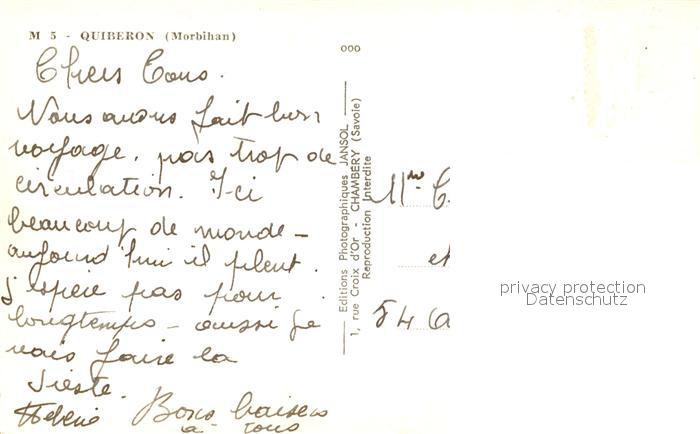 M 5 - QUIBERON (Morbihan)
Chers Tous.
Nous avons fait bon
voyage, pas trop de
circulation. Ici
beaucoup de monde -
aujourd'hui il pleut.
J'espère pas pour
longtemps - aussi je
vais faire la
Sieste.
Hélène Bons baisers
a - tous
ooo
Editions Photographiques JANSOL
1, rue Croix d'Or - CHAMBERY (Savoie)
Reproduction Interdite
Mr
et
54
privacy protection
Datenschutz